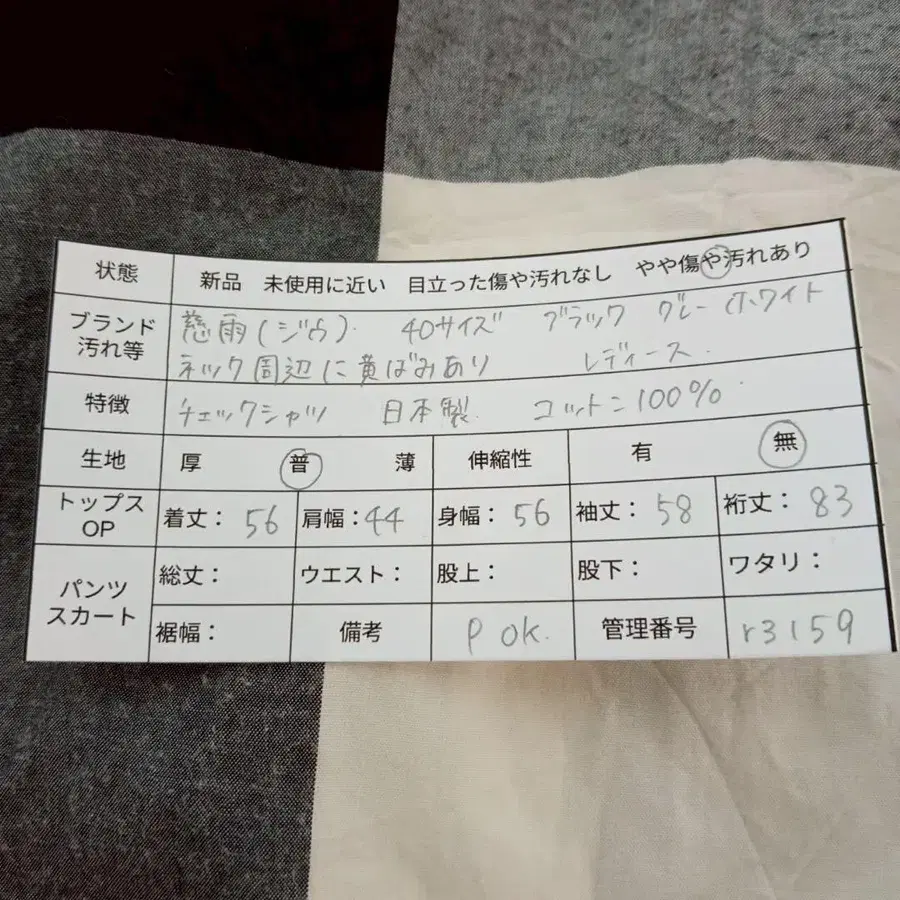 状態 新品 未使用に近い 目立った傷や汚れなし やや傷や汚れあり
ブランド 慈雨(ジウ). 40サイズ ブラック グレー ホワイト
汚れ等 ネック周辺に黄ばみあり レディース.
特徴 チェックシャツ 日本製. コットン100%
生地 厚 普 薄 伸縮性 有 無
トップス OP 着丈: 56 肩幅: 44 身幅: 56 袖丈: 58 裄丈: 83
パンツ 総丈: ウエスト: 股上: 股下: ワタリ:
スカート 裾幅: 備考 P ok. 管理番号 r3159